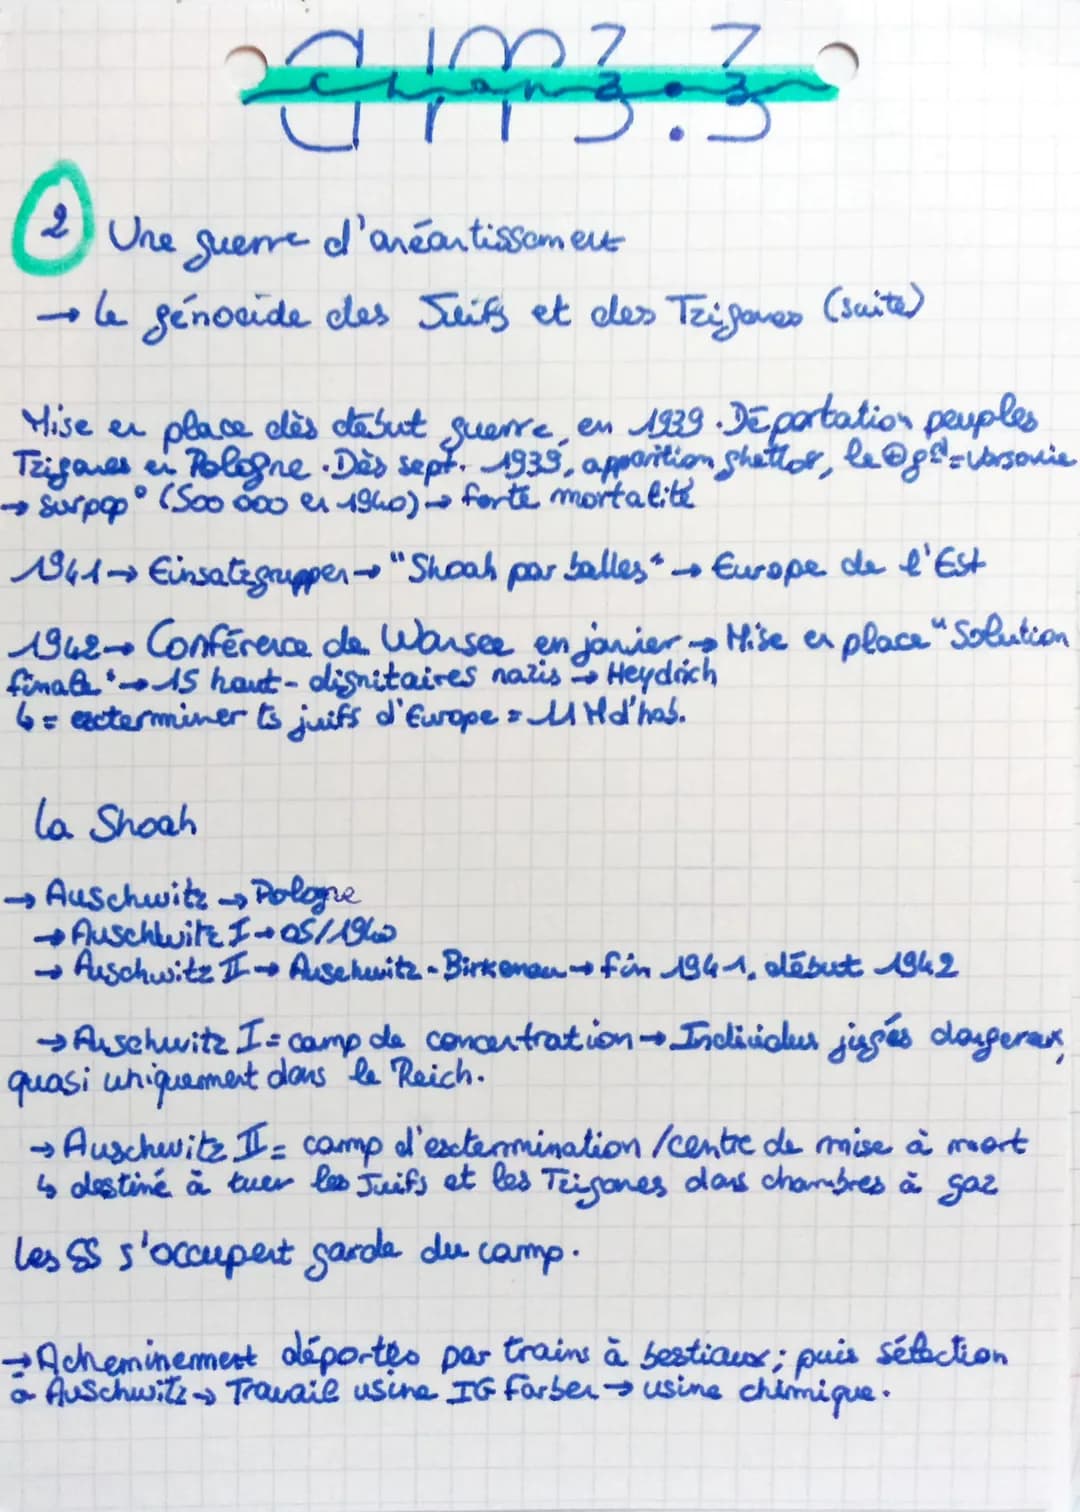 Chap 3.3
2 Une guerre d'anéantissement
→ Le génocide des Juifs et des Tziganes (suite)
Mise en place dès début guerre, en 1939. Déportation peuples
Tziganes en Pologne. Dès sept. 1939, apparition ghettos, le ⊕ gd = Varsovie
→ surpop° (500 000 en 1940) → forte mortalité
1941 → Einsatzgruppen → "Shoah par balles" → Europe de l'Est
1942 → Conférence de Wansee en janvier → Mise en place "Solution
finale" → 15 haut-dignitaires nazis → Heydrich
↳ = exterminer ts juifs d'Europe = 11 M d'hab.
La Shoah
→ Auschwitz → Pologne
→ Auschwitz I → 05/1940
→ Auschwitz II → Auschwitz-Birkenau → fin 1941, début 1942
→ Auschwitz I = camp de concentration → Individus jugés dangereux,
quasi uniquement dans le Reich.
→ Auschwitz II = camp d'extermination / centre de mise à mort
↳ destiné à tuer les Juifs et les Tziganes dans chambres à gaz
Les SS s'occupent garde du camp.
→ Acheminement déportés par trains à bestiaux ; puis sélection
à Auschwitz → Travail usine IG Farben → usine chimique.